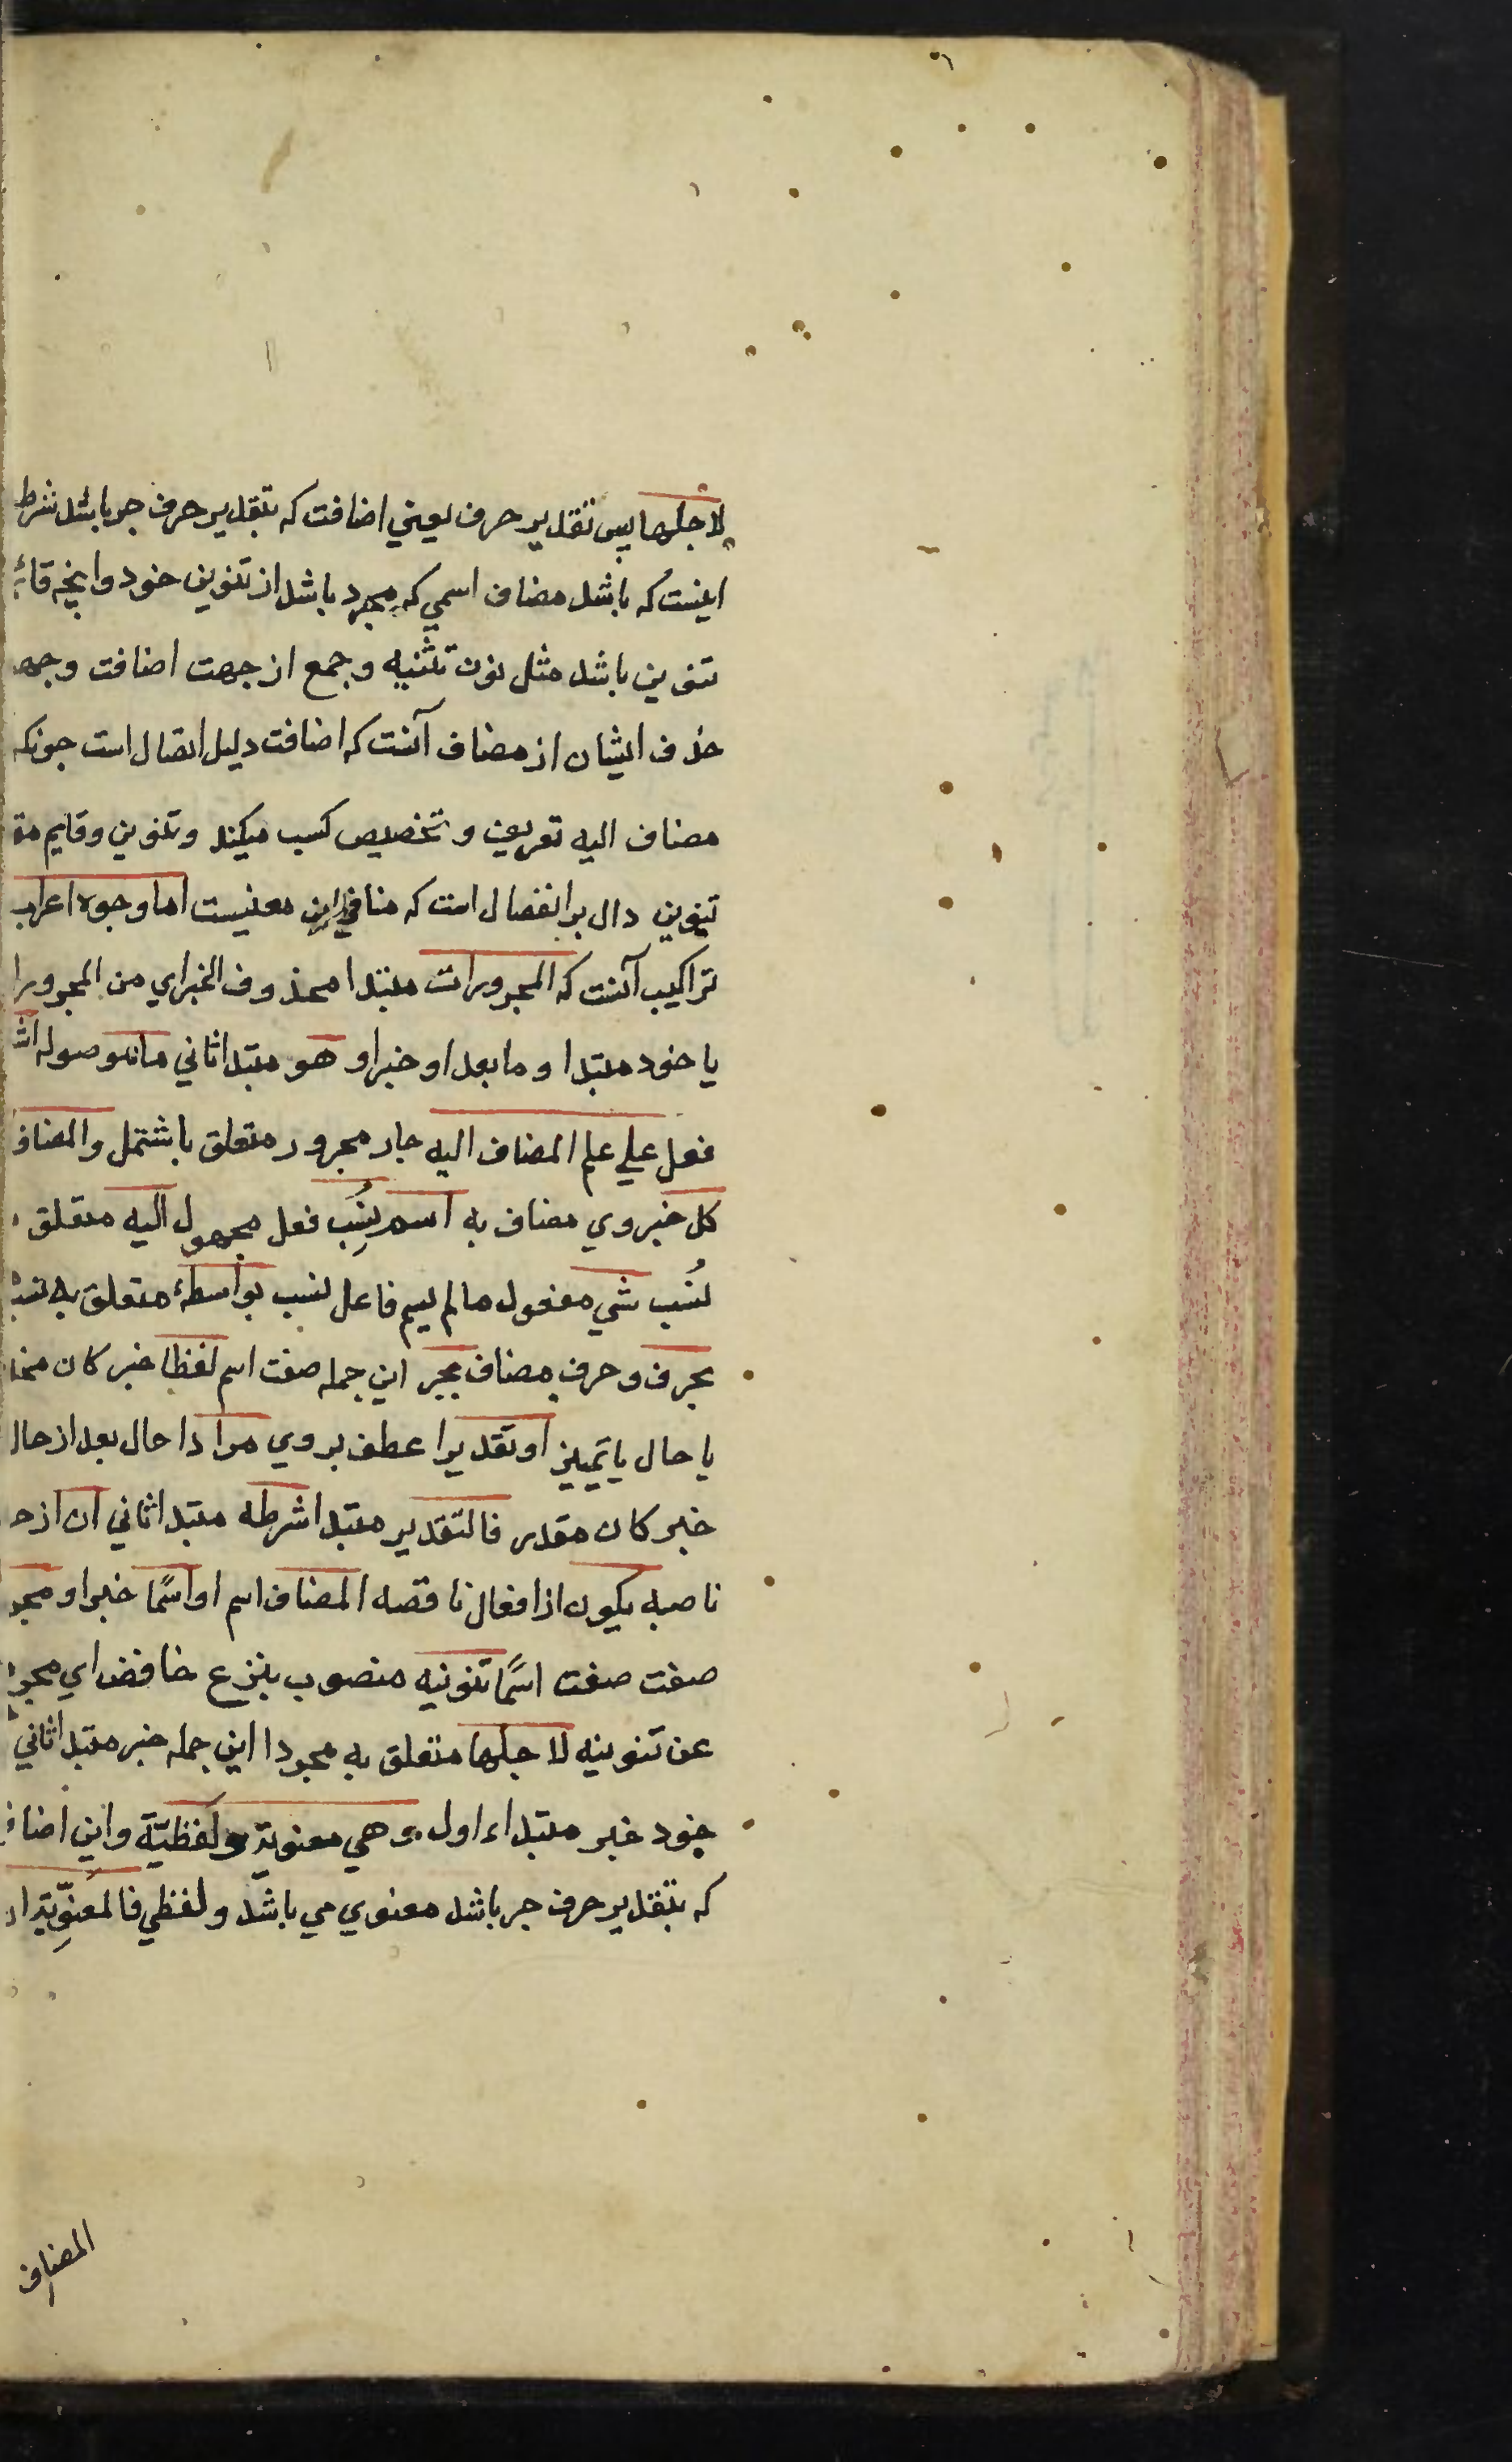 لاجلها پس تقدیر حرف یعني اضافت که بتقدیر حرف جر باشد شرط
اینست که باشد مضاف اسمي که مجرد باشد از تنوین خود وانچه قائم
تنوین باشد مثل نون تثنیه و جمع از جهت اضافت وجه
حذف ایشان از مضاف آنست که اضافت دلیل اتصال است چونکه
مضاف الیه تعریف و تخصیص کسب میکند و تنوین و قایم مقا
تنوین دال بر انفصال است که منافي این معنیست اما وجوه اعراب
تراکیب آنست که المجرورات مبتدا محذوف الخبر اي من المجرورا
یا خود مبتدا و ما بعد او خبر او هو مبتدا ثاني ما موصوله اشـ
فعل علي علم المضاف الیه جار مجرور متعلق باشتمل والمضاف
کل خبر وي مضاف به اسم نُسِب فعل مجهول الیه متعلق
نُسب شي مفعول ما لم یسم فاعل نسب بواسطۀ متعلق به نسب
بحرف و حرف مضاف بجر این جمله صفت اسم لفظا خبر کان محذ
یا حال یا تمییز او تقدیرا عطف بر وي مرادا حال بعد از حال
خبر کان مقدر فالتقدیر مبتدا شرطه مبتدا ثاني ان از حر
ناصبه یکون از افعال ناقصه المضاف اسم او اسمًا خبر او مجر
صفت صفت اسمًا تنوینه منصوب بنزع خافض اي مجرد
عن تنوینه لاجلها متعلق به مجردا این جمله خبر مبتدا ثاني
خود خبر مبتداء اول وهي معنویة ولفظیّة و این اضاف
که بتقدیر حرف جر باشد معنوي مي باشد و لفظي فالمعنویّة ا
المضاف